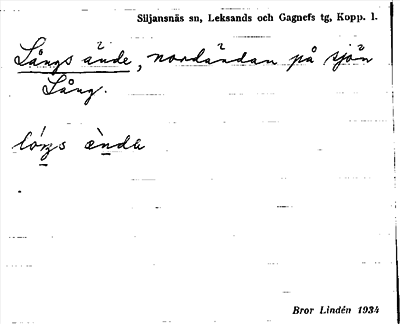 Siljansnäs sn, Leksands och Gagnefs tg, Kopp. l.
Långs ände, nordändan på sjön
Lång.
lóŋs ènda
Bror Lindén 1934